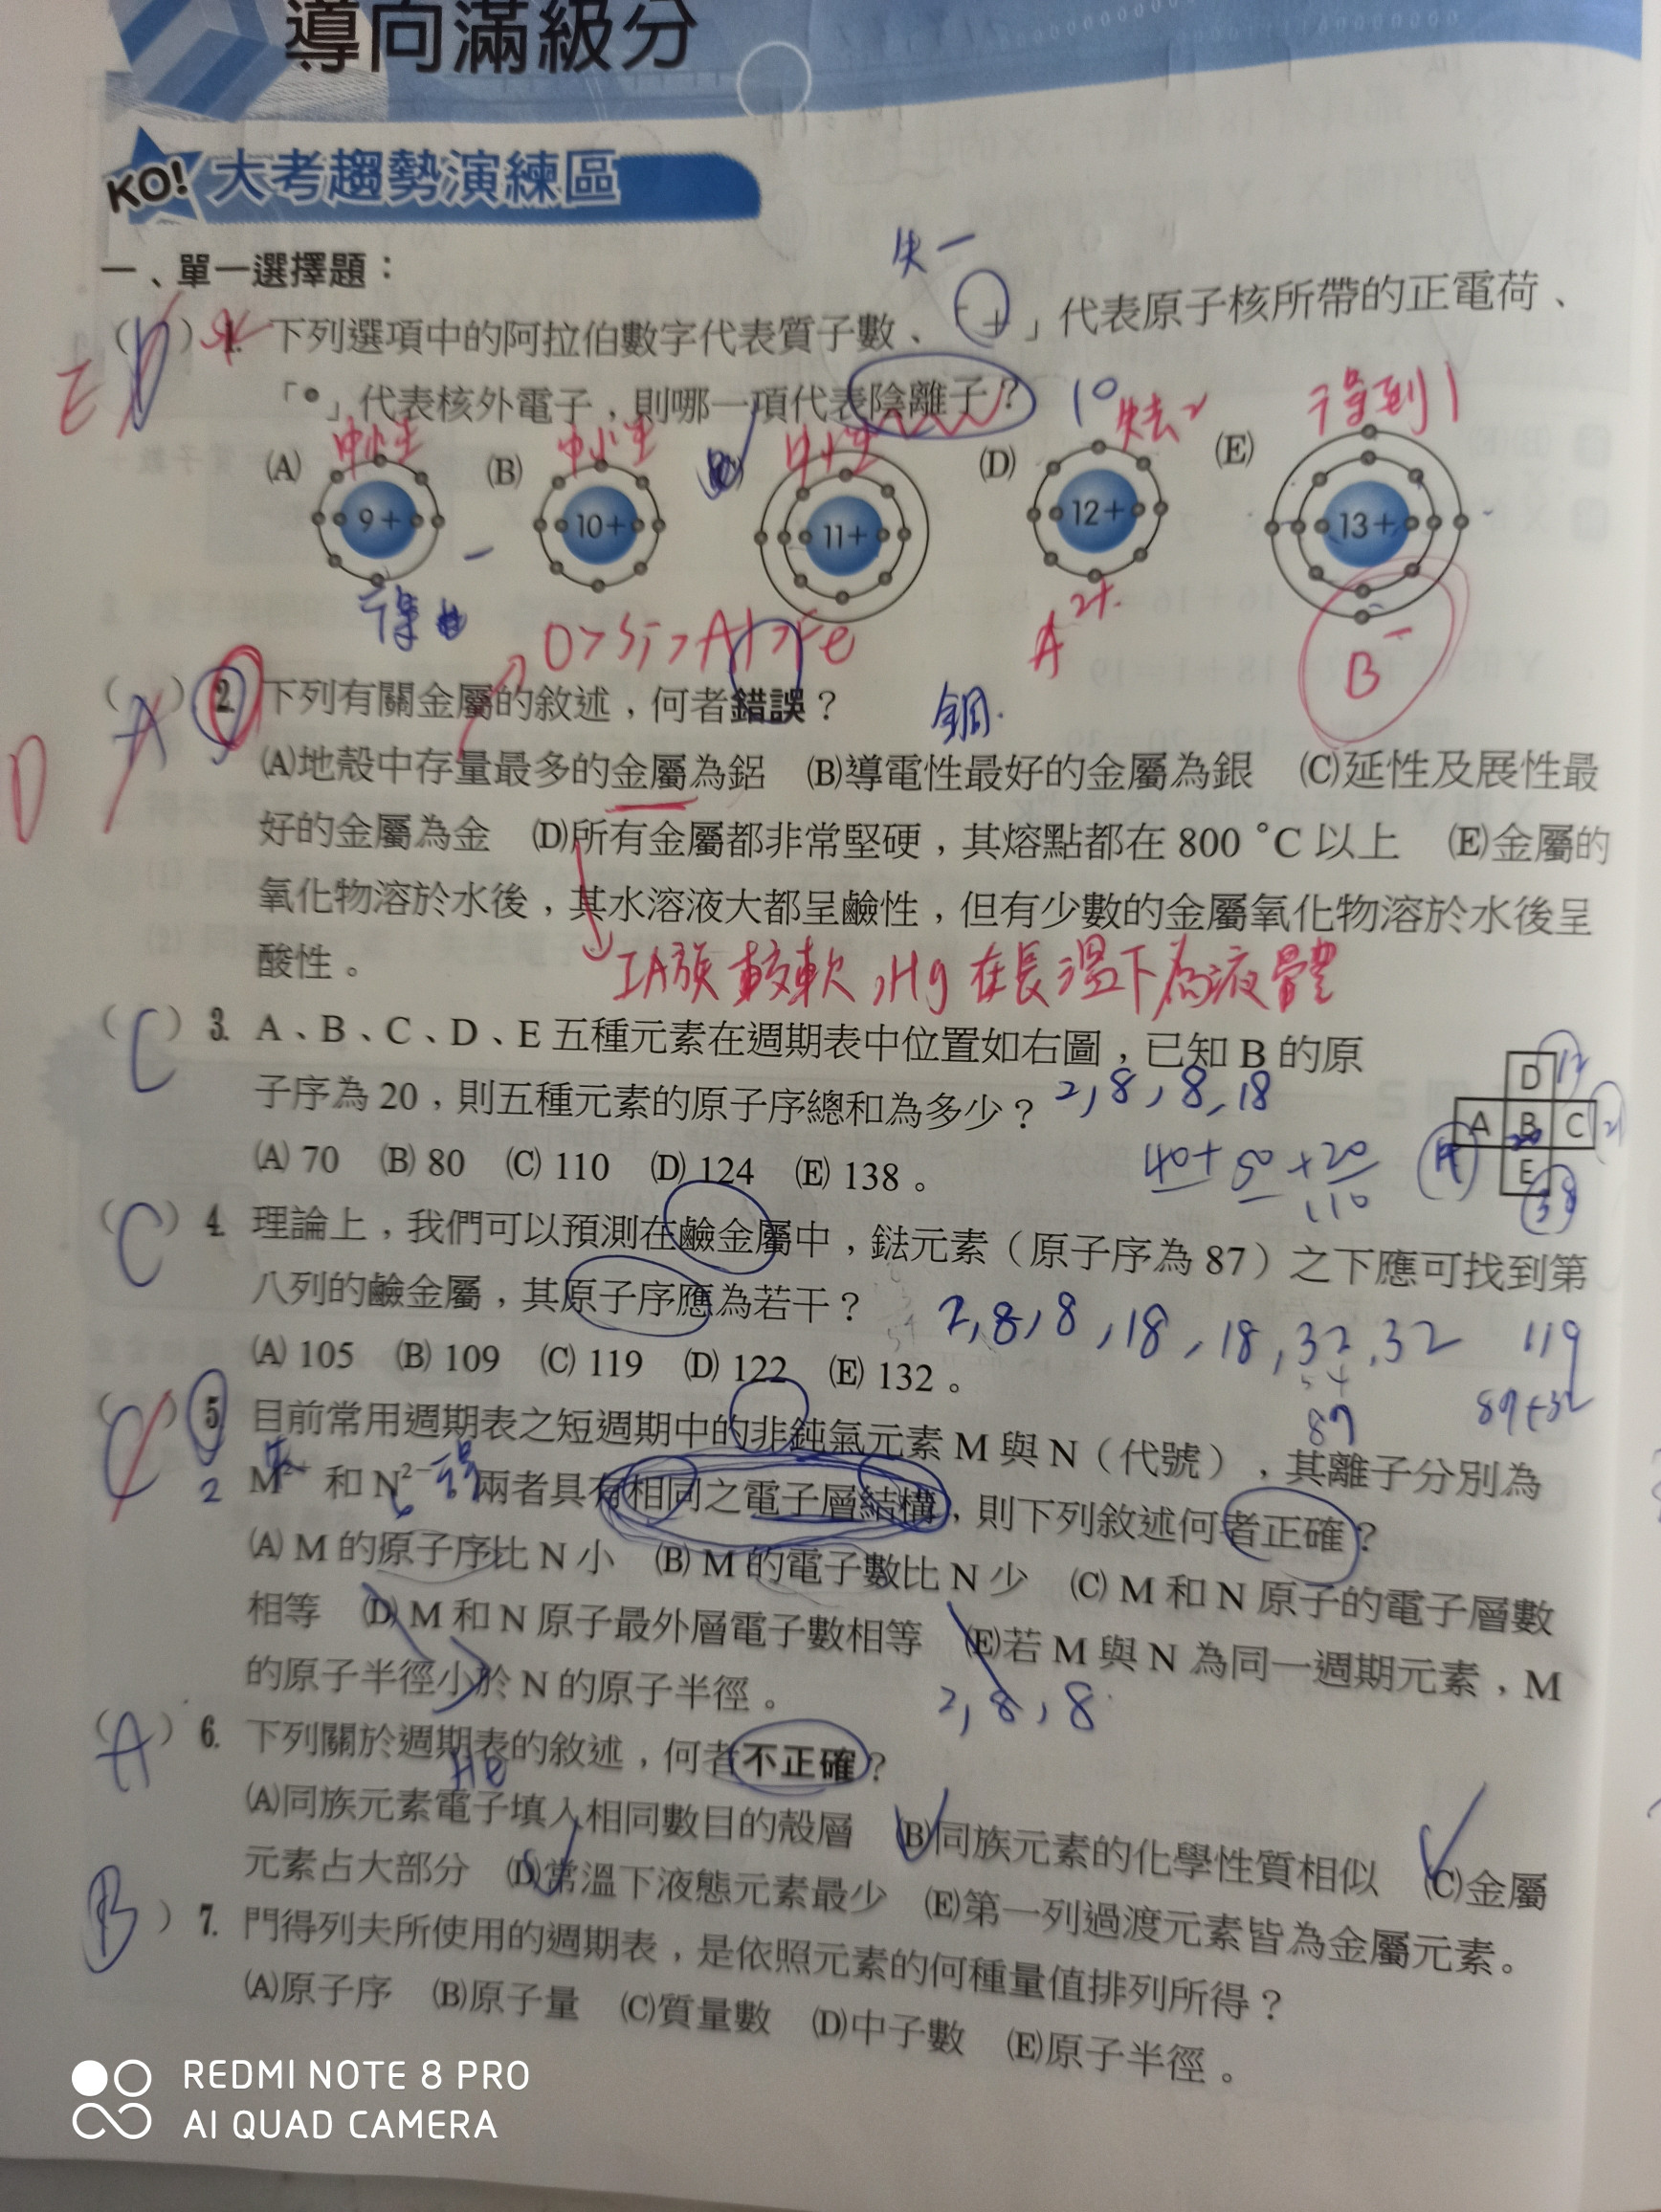 導向滿級分
KO! 大考趨勢演練區
一、單一選擇題：
失一
( D ) 1. 下列選項中的阿拉伯數字代表質子數、「+」代表原子核所帶的正電荷、
E
「●」代表核外電子，則哪一項代表陰離子？ 10 失去2 得到1
中性 中性 中性
(A) 9+ (B) 10+ 11+ (D) 12+ (E) 13+
得 A2+ B-
O>Si>Al>Fe
( A ) 2. 下列有關金屬的敘述，何者錯誤？ 銅
D
(A)地殼中存量最多的金屬為鋁 (B)導電性最好的金屬為銀 (C)延性及展性最
好的金屬為金 (D)所有金屬都非常堅硬，其熔點都在 800 °C 以上 (E)金屬的
氧化物溶於水後，其水溶液大都呈鹼性，但有少數的金屬氧化物溶於水後呈
酸性。
IA族較軟，Hg在長溫下為液體
( C ) 3. A、B、C、D、E 五種元素在週期表中位置如右圖，已知 B 的原
子序為 20，則五種元素的原子序總和為多少？ 2,8,8,18
D 12
A B C 21
20
19 E
38
(A) 70 (B) 80 (C) 110 (D) 124 (E) 138。
40+50+20
110
( C ) 4. 理論上，我們可以預測在鹼金屬中，鍅元素（原子序為 87）之下應可找到第
八列的鹼金屬，其原子序應為若干？
2,8,8,18,18,32,32 119
(A) 105 (B) 109 (C) 119 (D) 122 (E) 132。
54
87 87+32
( C ) 5. 目前常用週期表之短週期中的非鈍氣元素 M 與 N（代號），其離子分別為
失 得
2 6
M2+ 和 N2− 兩者具有相同之電子層結構，則下列敘述何者正確？
(A) M 的原子序比 N 小 (B) M 的電子數比 N 少 (C) M 和 N 原子的電子層數
相等 (D) M 和 N 原子最外層電子數相等 (E)若 M 與 N 為同一週期元素，M
的原子半徑小於 N 的原子半徑。
2,8,8
( A ) 6. 下列關於週期表的敘述，何者不正確？
He
(A)同族元素電子填入相同數目的殼層 (B)同族元素的化學性質相似 (C)金屬
元素占大部分 (D)常溫下液態元素最少 (E)第一列過渡元素皆為金屬元素。
( B ) 7. 門得列夫所使用的週期表，是依照元素的何種量值排列所得？
(A)原子序 (B)原子量 (C)質量數 (D)中子數 (E)原子半徑。
REDMI NOTE 8 PRO
AI QUAD CAMERA